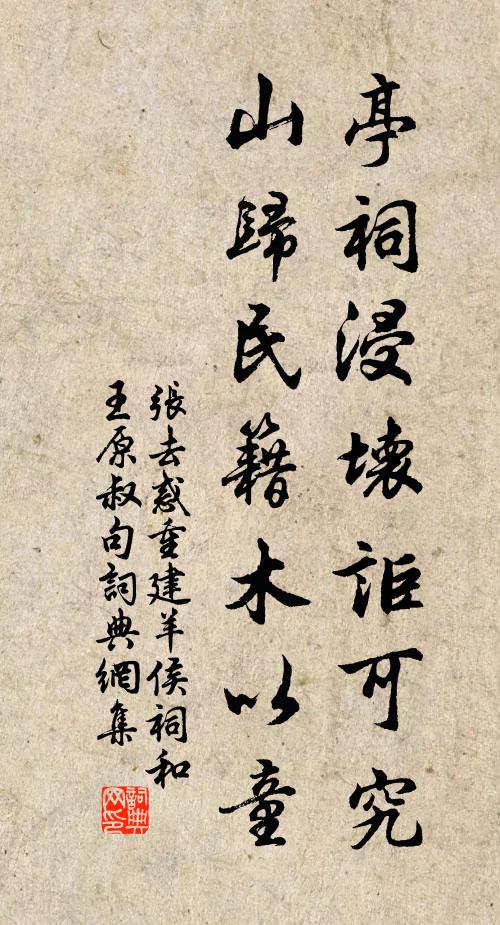 亭祠浸壊詎可究
山歸民籍木以童
張去惑重建羊侯祠和
王原叔句詞典網集
詞典
网印